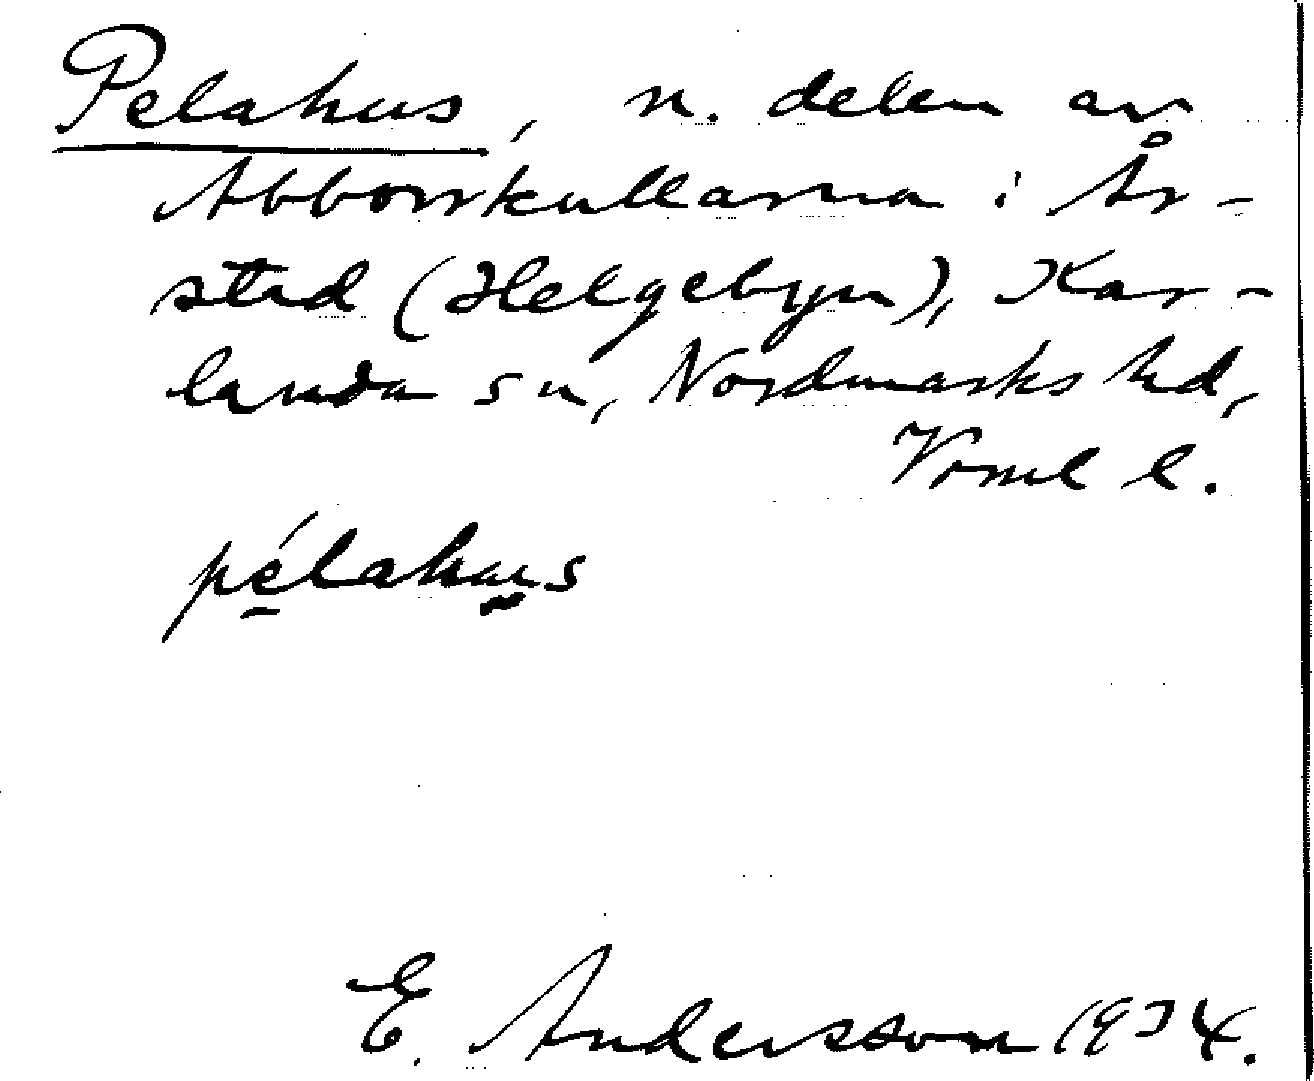 Pelahus, n. delen av
Abborrkullarna i År-
stad (Helgebyn), Kar-
landa sn, Nordmarks hd,
Vrml l.
pélahus
E. Andersson 1934.